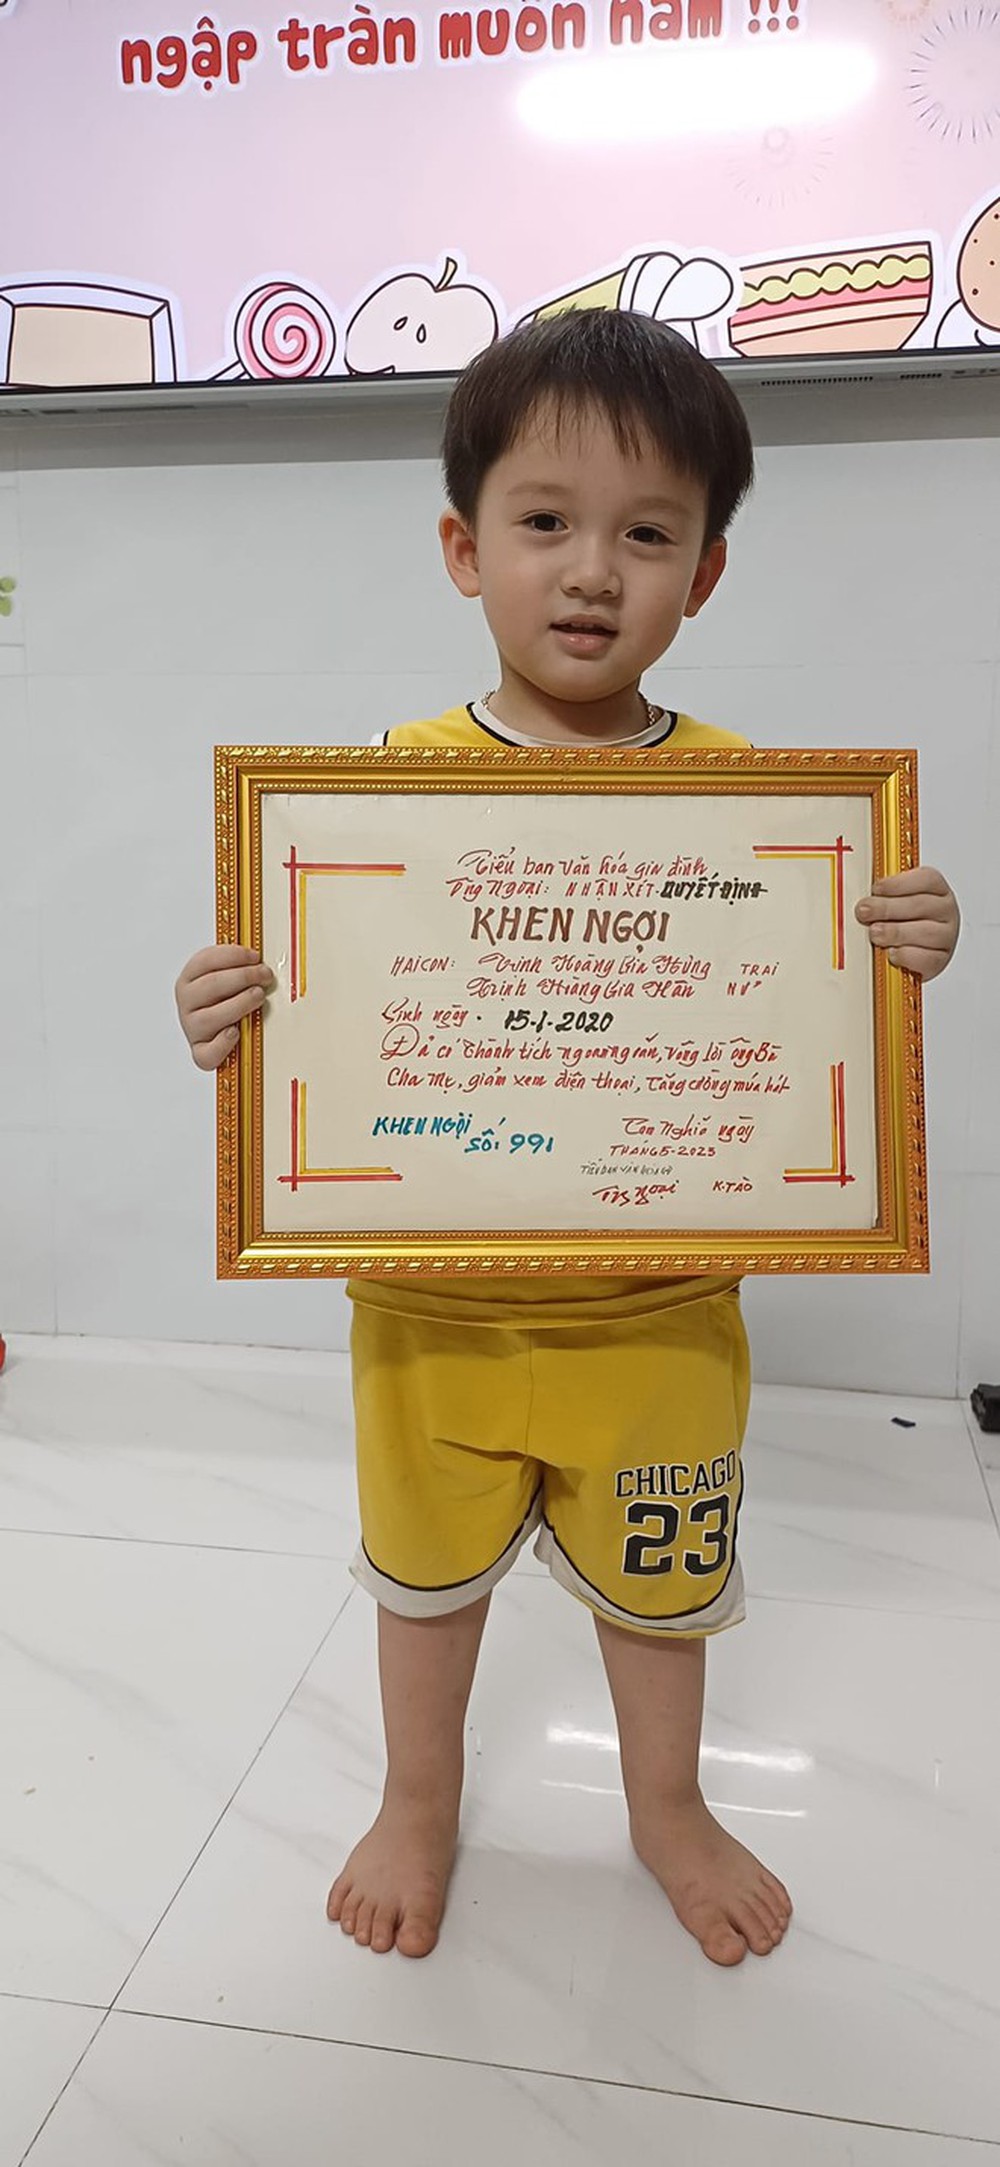 ngập tràn muôn năm !!!
Tiểu ban văn hóa gia đình
Ông Ngoại: NHẬN XÉT. QUYẾT ĐỊNH
KHEN NGỢI
HAI CON: Trịnh Hoàng Gia Hưng TRAI
Trịnh Hoàng Gia Hân NỮ
Sinh ngày. 15-1-2020
Đã có thành tích ngoan ngoãn, vâng lời Ông Bà
Cha Mẹ, giảm xem điện thoại, tăng cường múa hát
KHEN NGỢI
SỐ: 991
Tân Nghĩa ngày
THÁNG 5-2023
Ông Ngoại K.TÀO
CHICAGO
23